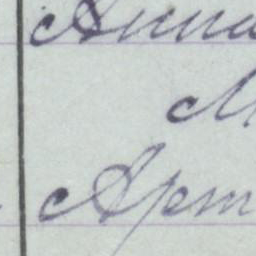 Анна
М
Арт